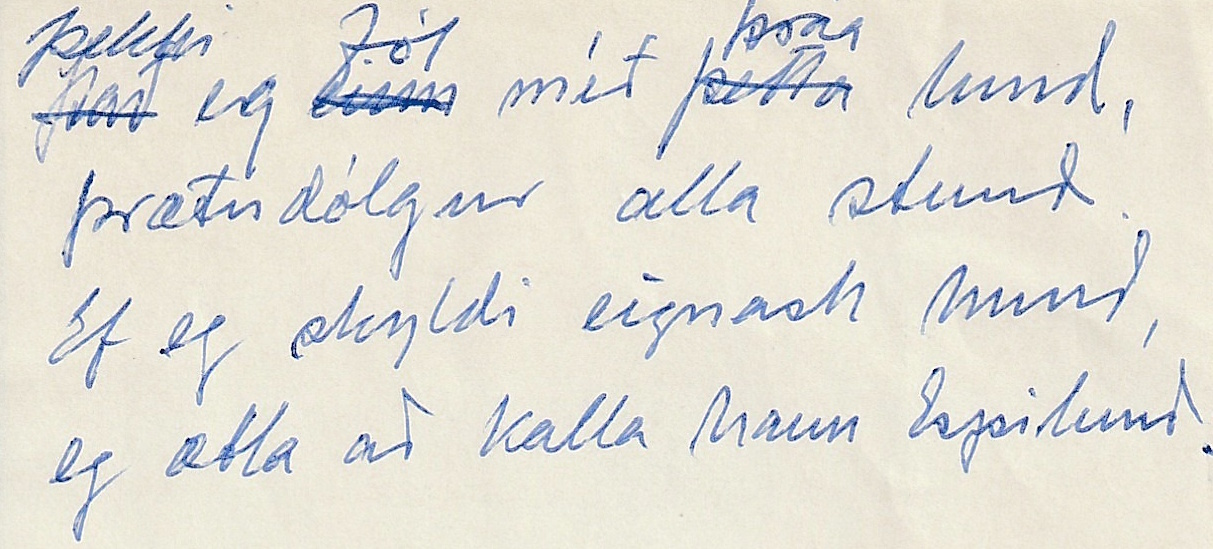 þekki fól þráa
eg með þetta lund,
þrætudólgur alla stund.
Ef eg skyldi eignast hund,
eg ætla að kalla hann Espilund.